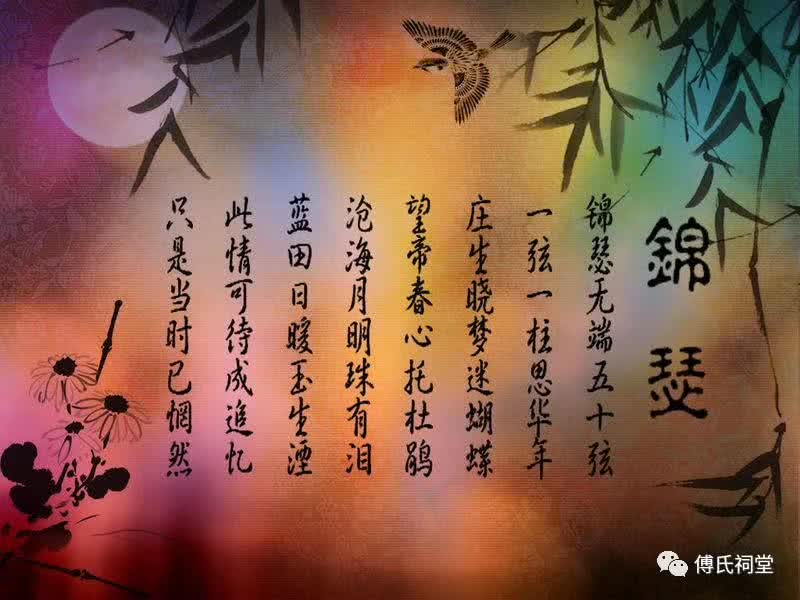 錦瑟
锦瑟无端五十弦
一弦一柱思华年
庄生晓梦迷蝴蝶
望帝春心托杜鹃
沧海月明珠有泪
蓝田日暖玉生湮
此情可待成追忆
只是当时已惘然
傅氏祠堂